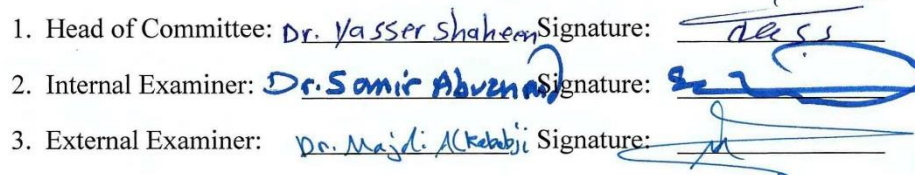 1. Head of Committee: Dr. Yasser Shaheen Signature:
2. Internal Examiner: Dr. Samir Abuznaid Signature:
3. External Examiner: Dr. Majdi Alkababji Signature: